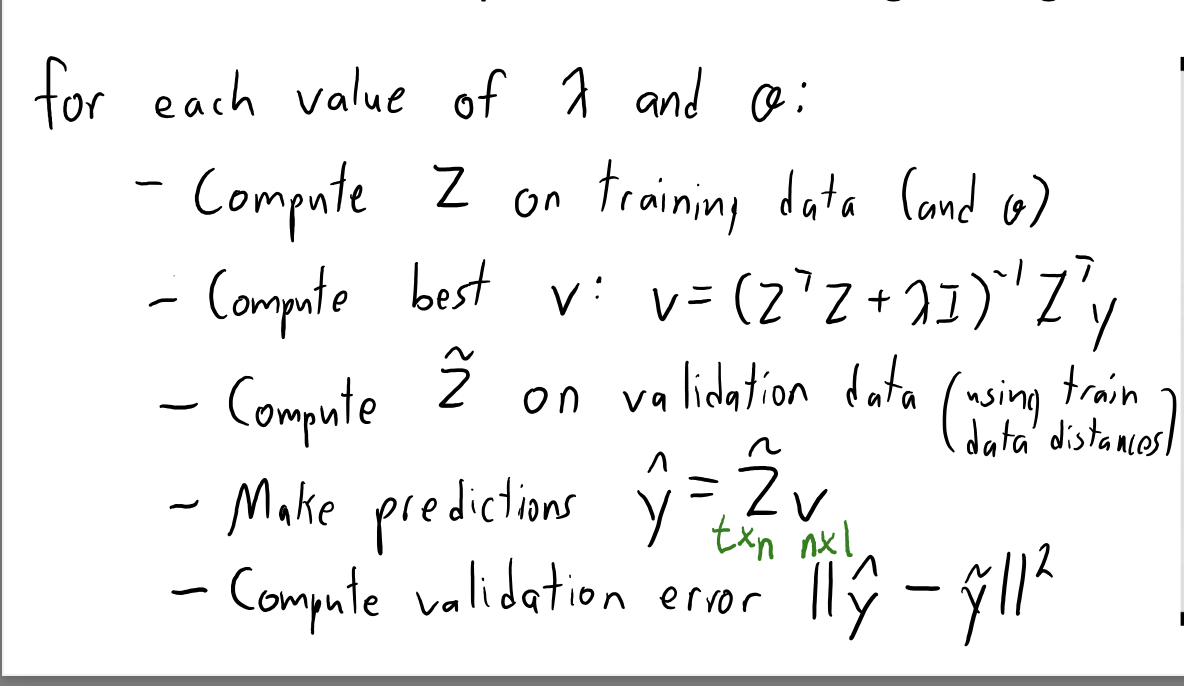 for each value of λ and σ:
- Compute Z on training data (and σ)
- Compute best v: v = (ZᵀZ + λI)⁻¹Zᵀy
- Compute Z̃ on validation data (using train data distances)
- Make predictions ŷ = Z̃v
txn nx1
- Compute validation error ||ŷ - ỹ||²